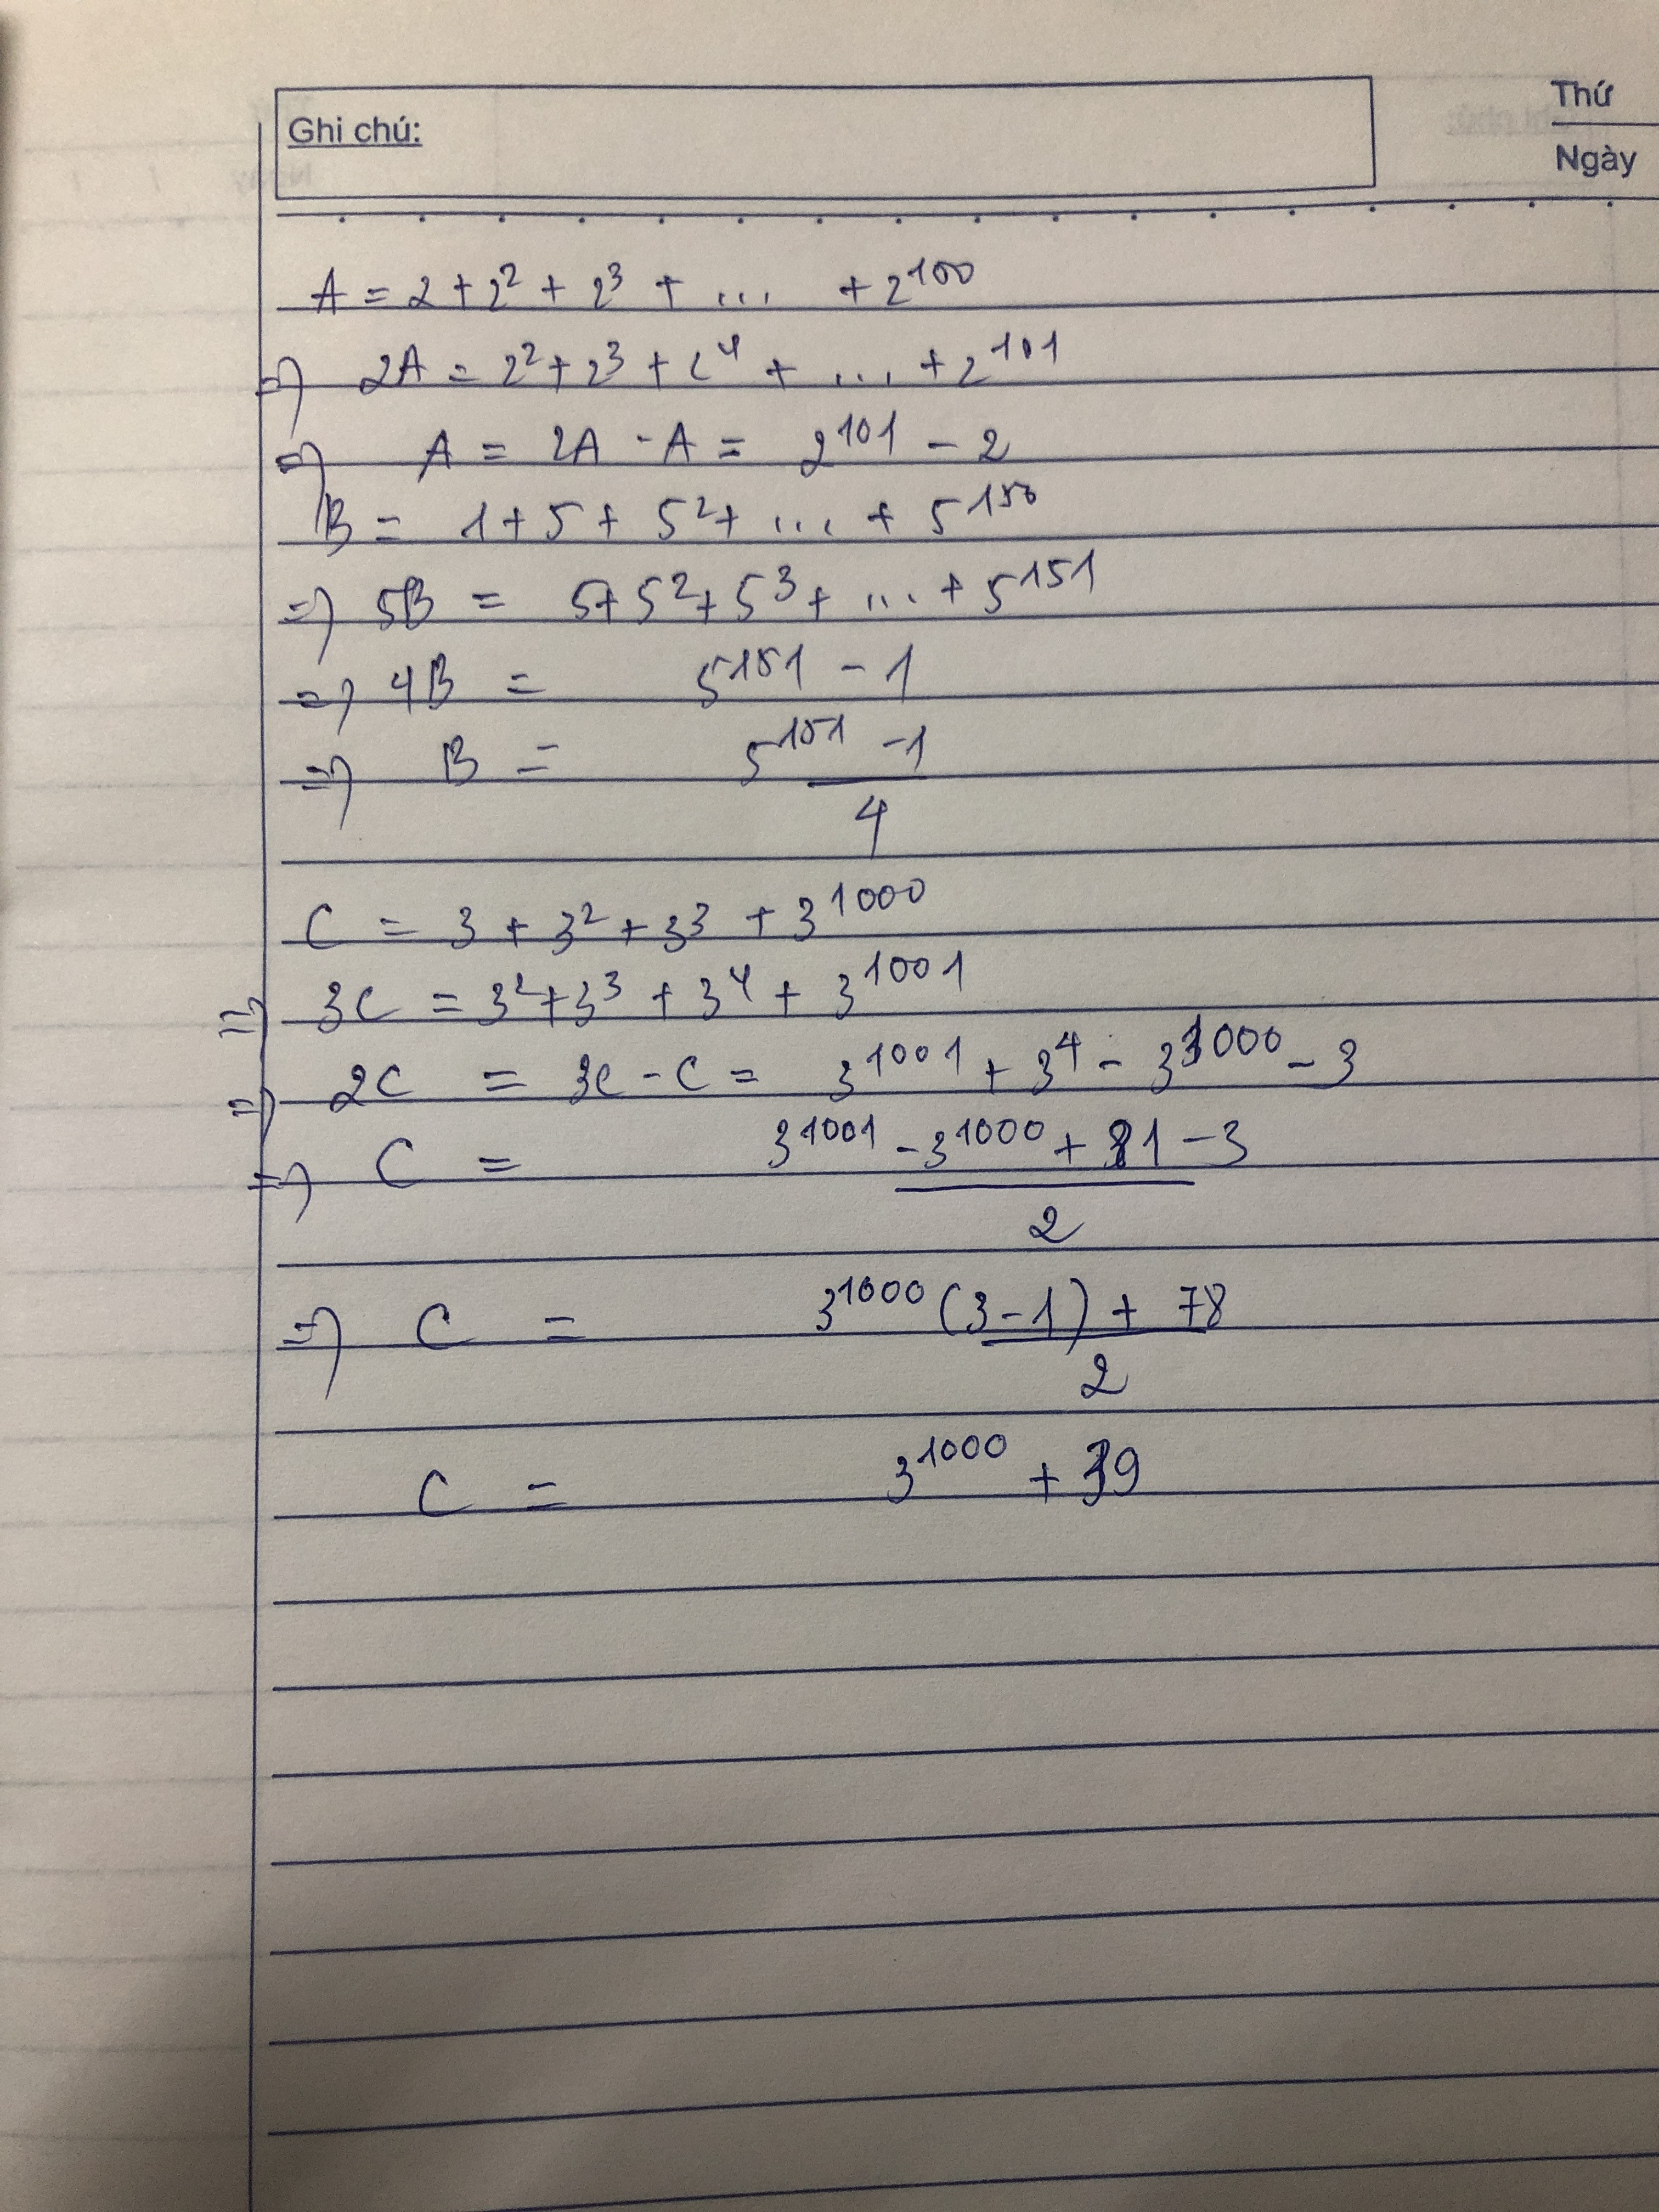 Ghi chú:
Thứ
Ngày
A = 2 + 2² + 2³ + ... + 2¹⁰⁰
=> 2A = 2² + 2³ + 2⁴ + ... + 2¹⁰¹
=> A = 2A - A = 2¹⁰¹ - 2
B = 1 + 5 + 5² + ... + 5¹⁵⁰
=> 5B = 5 + 5² + 5³ + ... + 5¹⁵¹
=> 4B = 5¹⁵¹ - 1
=> B = 5¹⁵¹ - 1
4
C = 3 + 3² + 3³ + 3¹⁰⁰⁰
=> 3C = 3² + 3³ + 3⁴ + 3¹⁰⁰¹
=> 2C = 3C - C = 3¹⁰⁰¹ + 3⁴ - 3¹⁰⁰⁰ - 3
=> C = 3¹⁰⁰¹ - 3¹⁰⁰⁰ + 81 - 3
2
=> C = 3¹⁰⁰⁰ (3 - 1) + 78
2
C = 3¹⁰⁰⁰ + 39